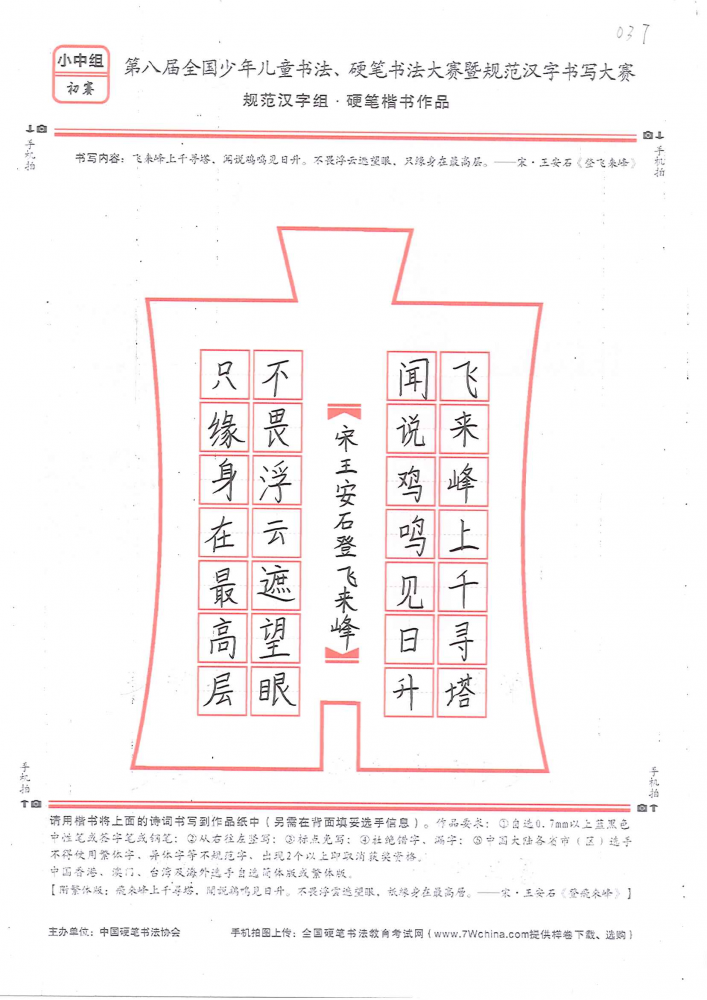 037
小中组
初赛
第八届全国少年儿童书法、硬笔书法大赛暨规范汉字书写大赛
规范汉字组·硬笔楷书作品
手机拍
手机拍
书写内容：飞来峰上千寻塔，闻说鸡鸣见日升。不畏浮云遮望眼，只缘身在最高层。——宋·王安石《登飞来峰》
飞来峰上千寻塔
闻说鸡鸣见日升
宋王安石登飞来峰
不畏浮云遮望眼
只缘身在最高层
手机拍
手机拍
请用楷书将上面的诗词书写到作品纸中（另需在背面填妥选手信息）。作品要求：①自选0.7mm以上蓝黑色
中性笔或签字笔或钢笔；②从右往左竖写；③标点免写；④杜绝错字、漏字；⑤中国大陆各省市（区）选手
不得使用繁体字、异体字等不规范字，出现2个以上即取消获奖资格。
中国香港、澳门、台湾及海外选手自选简体版或繁体版。
【附繁体版：飛来峰上千尋塔，聞説鷄鳴見日升。不畏浮雲遮望眼，祇緣身在最高層。——宋·王安石《登飛来峰》】
主办单位：中国硬笔书法协会 手机拍图上传：全国硬笔书法教育考试网（www.7Wchina.com提供样卷下载、选购）